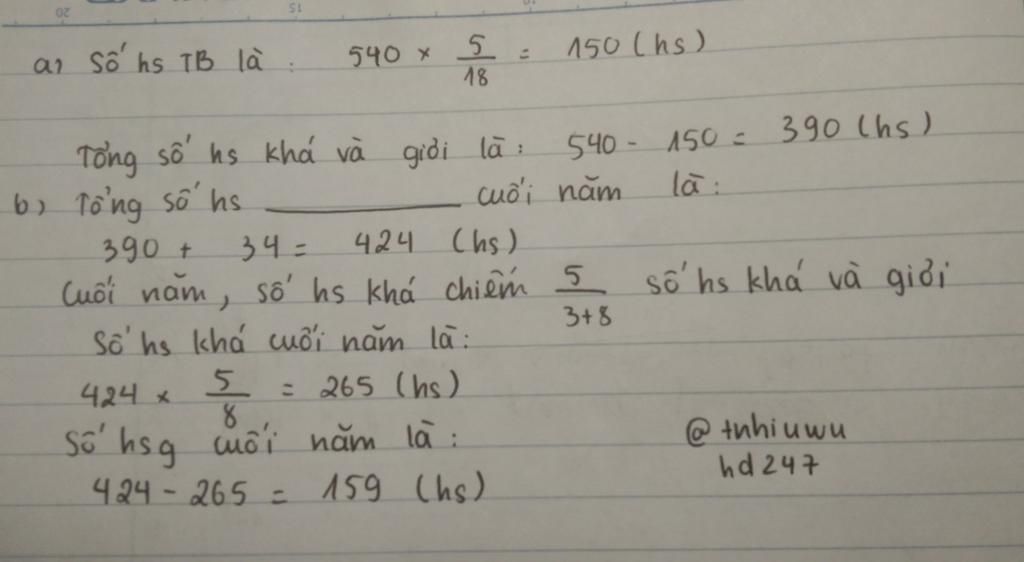 20 15 10
a) Số hs TB là: 540 × 5/18 = 150 (hs)
Tổng số hs khá và giỏi là: 540 - 150 = 390 (hs)
b) Tổng số hs ________ cuối năm là:
390 + 34 = 424 (hs)
Cuối năm, số hs khá chiếm 5/3+8 số hs khá và giỏi
Số hs khá cuối năm là:
424 × 5/8 = 265 (hs)
Số hsg cuối năm là:
424 - 265 = 159 (hs)
@tnhiuwu
hd247